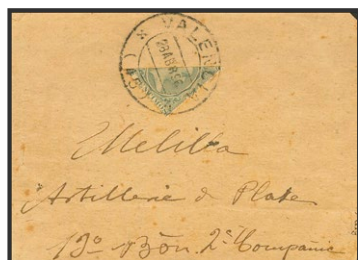 VALENCIA
Melilla
Artilleria d Plaza
13º Bón. 2ª Compañia